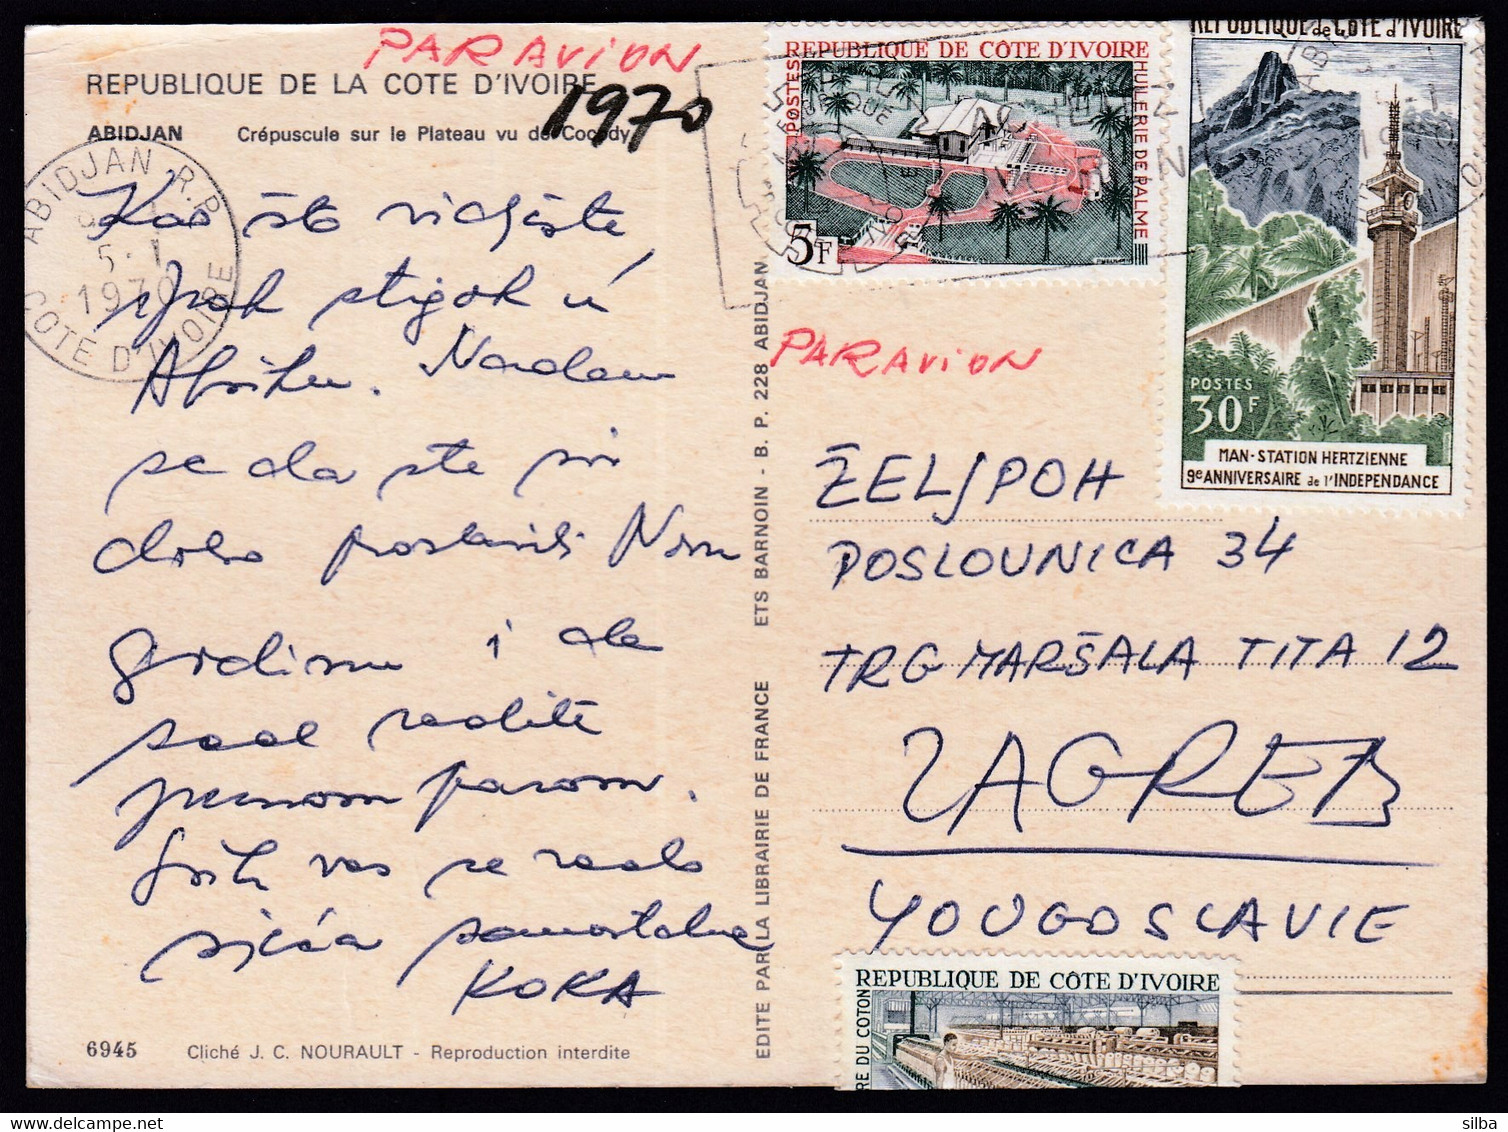 PAR AVION
REPUBLIQUE DE LA COTE D'IVOIRE
1970
ABIDJAN Crépuscule sur le Plateau vu de Cocody
ABIDJAN R.P.
5-1
1970
COTE D'IVOIRE
Kao što vidjete
ipak stigoh u
Afriku. Nadam
se da ste si
dobro postavili Novu
godinu i da
sad radite
punom parom.
Srih vas se rado
sjeća samostalna
KOKA
6945 Cliché J. C. NOURAULT - Reproduction interdite
EDITE PAR LA LIBRAIRIE DE FRANCE ETS BARNOIN - B. P. 228 ABIDJAN
REPUBLIQUE DE CÔTE D'IVOIRE
POSTES
HUILERIE DE PALME
5F
REPUBLIQUE de CÔTE d'IVOIRE
POSTES
30F
MAN-STATION HERTZIENNE
9e ANNIVERSAIRE de l'INDEPENDANCE
PAR AVION
ŽELJPOH
POSLOVNICA 34
TRG MARŠALA TITA 12
ZAGREB
YOUGOSLAVIE
REPUBLIQUE DE CÔTE D'IVOIRE
RE DU COTON